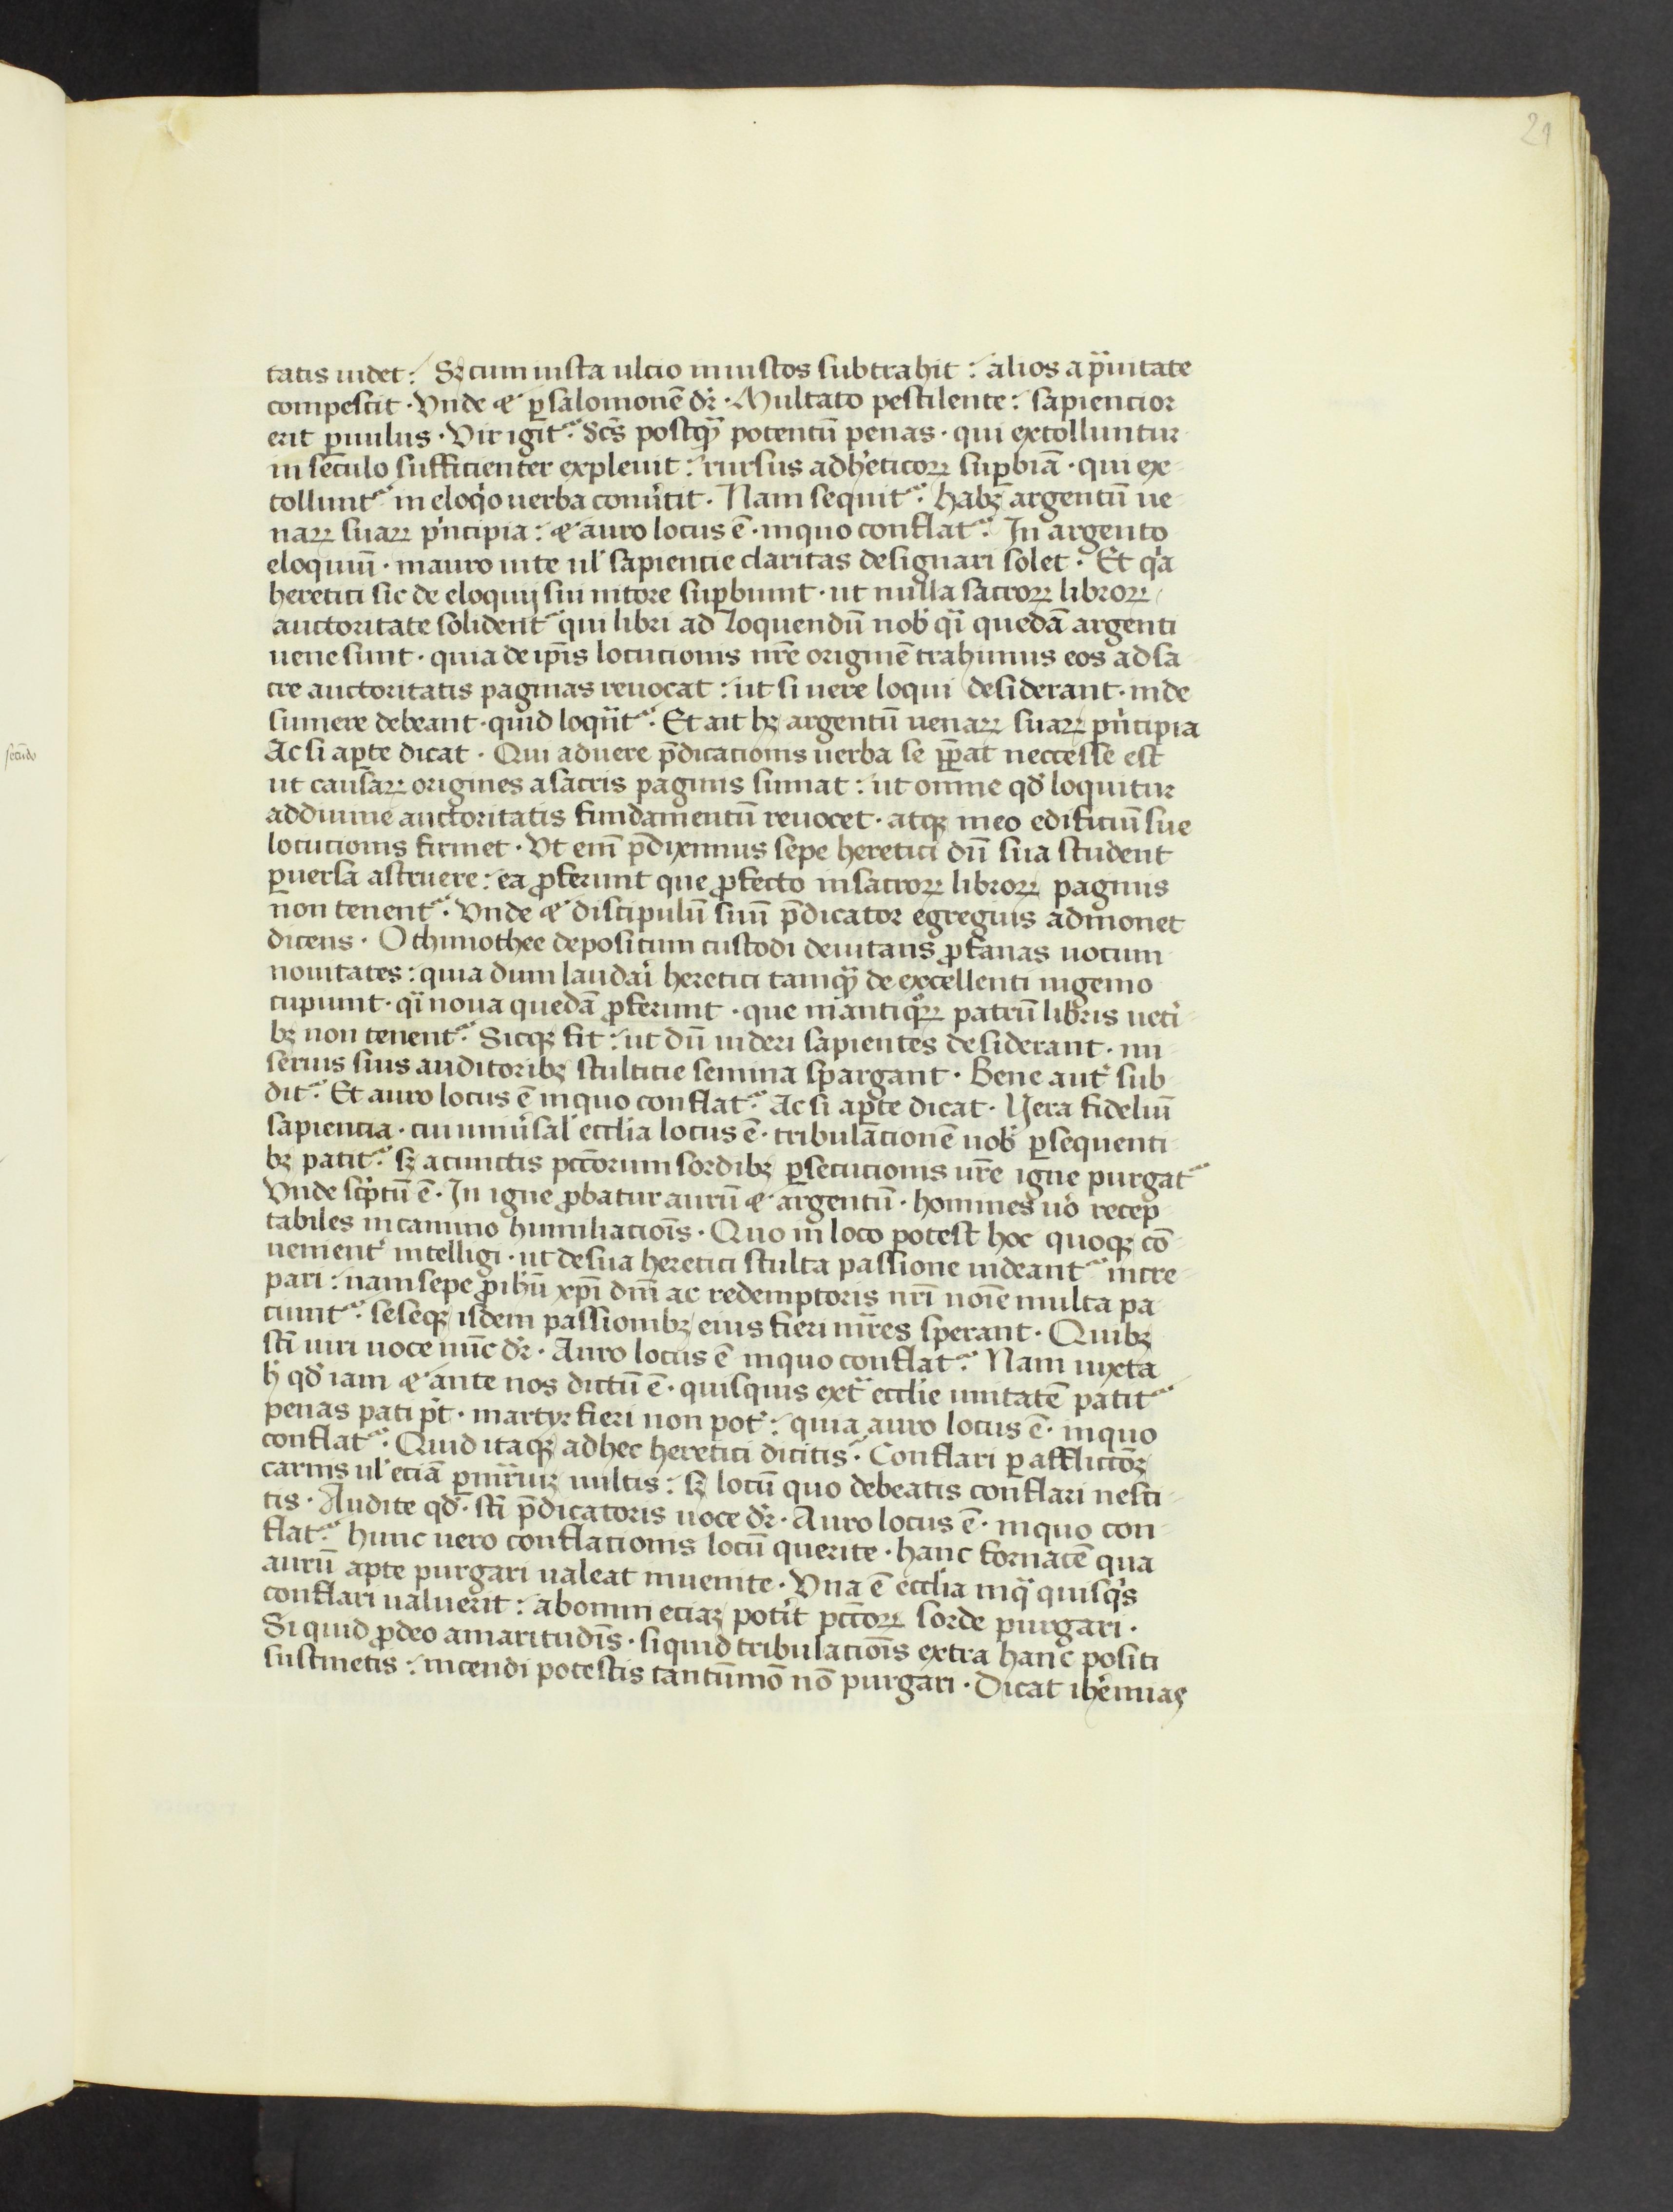 21
tatis uidet : Sꝫ cum iusta ulcio iniustos subtrahit : alios a p̾uitate
compescit · Vnde ⁊ ꝑ salomonē dr̄ · Multato pestilente : sapiencior
erit ꝑuulus · Vir igit᷑ · scs̄ postq̄ȝ potentū penas · qui extolluntur
in seculo sufficienter expleuit : rursus ad h'eticoꝝ suꝑbiā · qui ex-
tollunt᷑ in eloq'o uerba conu'tit · Nam sequit᷑ · habꝫ argentū ue-
naꝝ suaꝝ p'ncipia : ⁊ auro locus ē · in quo conflat᷑ · In argento
eloquiū · in auro uite ul' sapiencie claritas designari solet · Et q'a
heretici sic de eloquij sui nitore suꝑbiunt · ut nulla sacroꝝ libroꝝ
auctoritate solident᷑ qui libri ad loquendū nob' q̄i quedā argenti
uene sunt · quia de ip̄is locucionis nr̄e originē trahimus eos ad sa
cre auctoritatis paginas reuocat : ut si uere loqui desiderant · inde
sumere debeant · quid loqu̅t᷑ · Et ait hꝫ argentū uenaꝝ suaꝝ p'ncipia
secundo
Ac si aꝑte dicat · Qui ad uere p̄dicacionis uerba se p̄ꝑat neccesse est
ut causaꝝ origines a sacris paginis sumat : ut omne qd' loquitur
ad diuine auctoritatis fundamentū reuocet · atqꝫ in eo edificiū sue
locucionis firmet · Vt em̄ p̄diximus sepe heretici dū sua student
ꝑuersa astruere : ea ꝓferunt que ꝓfecto in sacroꝝ libroꝝ paginis
non tenent᷑ · Vnde ⁊ discipulū suū p̄dicator egregius admonet
dicens · O thimothee depositum custodi deuitans ꝓfanas uocum
nouitates : quia dum laudari heretici tamq̄ȝ de excellenti ingenio
cupiunt · q̄i noua quedā ꝓferunt · que in antiquoꝝ patrū libris uet'i-
bꝫ non tenent᷑ · Sicqꝫ fit : ut dū uideri sapientes desiderant · mi
seris suis auditoribꝫ stulticie semina spargant · Bene aut' sub
dit᷑ · Et auro locus ē in quo conflat᷑ · Ac si aꝑte dicat · Vera fideliū
sapiencia · cui uniu'sal' ecclia locus ē · tribulacionē uob' ꝑsequenti-
bꝫ patit᷑ · sꝫ a cunctis pcc̄orum sordibꝫ ꝑsecucionis ur̄e igne purgat᷑
Vnde sc'ptū ē · In igne ꝓbatur aurū ⁊ argentū · homines u'o recep
tabiles in camino humiliacio̅is · Quo in loco potest hoc quoqꝫ cō-
uenient' intelligi · ut de sua heretici stulta passione uideant᷑ incre-
pari : nam sepe ꝓ ihū xp̄i dn̄i ac redemptoris nr̄i noīe multa pa
ciunt᷑ · seseqꝫ isdem passionibꝫ eius fieri m̄res sperant · Quibꝫ
sc̄i uiri uoce nūc dr̄ · Auro locus ē in quo conflat᷑ · Nam iuxta
h' qd' iam ⁊ ante nos dictū ē · quisquis ext̾ ecclie unitatē patit᷑
penas pati pt̄ · martyr fieri non pot' : quia auro locus ē · in quo
conflat᷑ · Quid itaqꝫ ad hec heretici dicitis · Conflari ꝑ afflictōꝫ
carnis ul' eciā ꝑ m̄riuꝫ uultis : sꝫ locū quo debeatis conflari nesci-
tis · Audite qd' · sc̄i p̄dicatoris uoce dr̄ · Auro locus ē · in quo con-
flat᷑ · hunc uero conflacionis locū querite · hanc fornacē qua
aurū apte purgari ualeat inuenite · Vna ē ecclia in q̄ quisq's
conflari ualuerit : ab omni eciaꝫ potit pcc̄oꝝ sorde purgari ·
Si quid ꝓ deo amaritudīs · si quid tribulacio̅is extra hanc positi
sustinetis : incendi potestis tantūmo' nō purgari · Dicat ih'emias